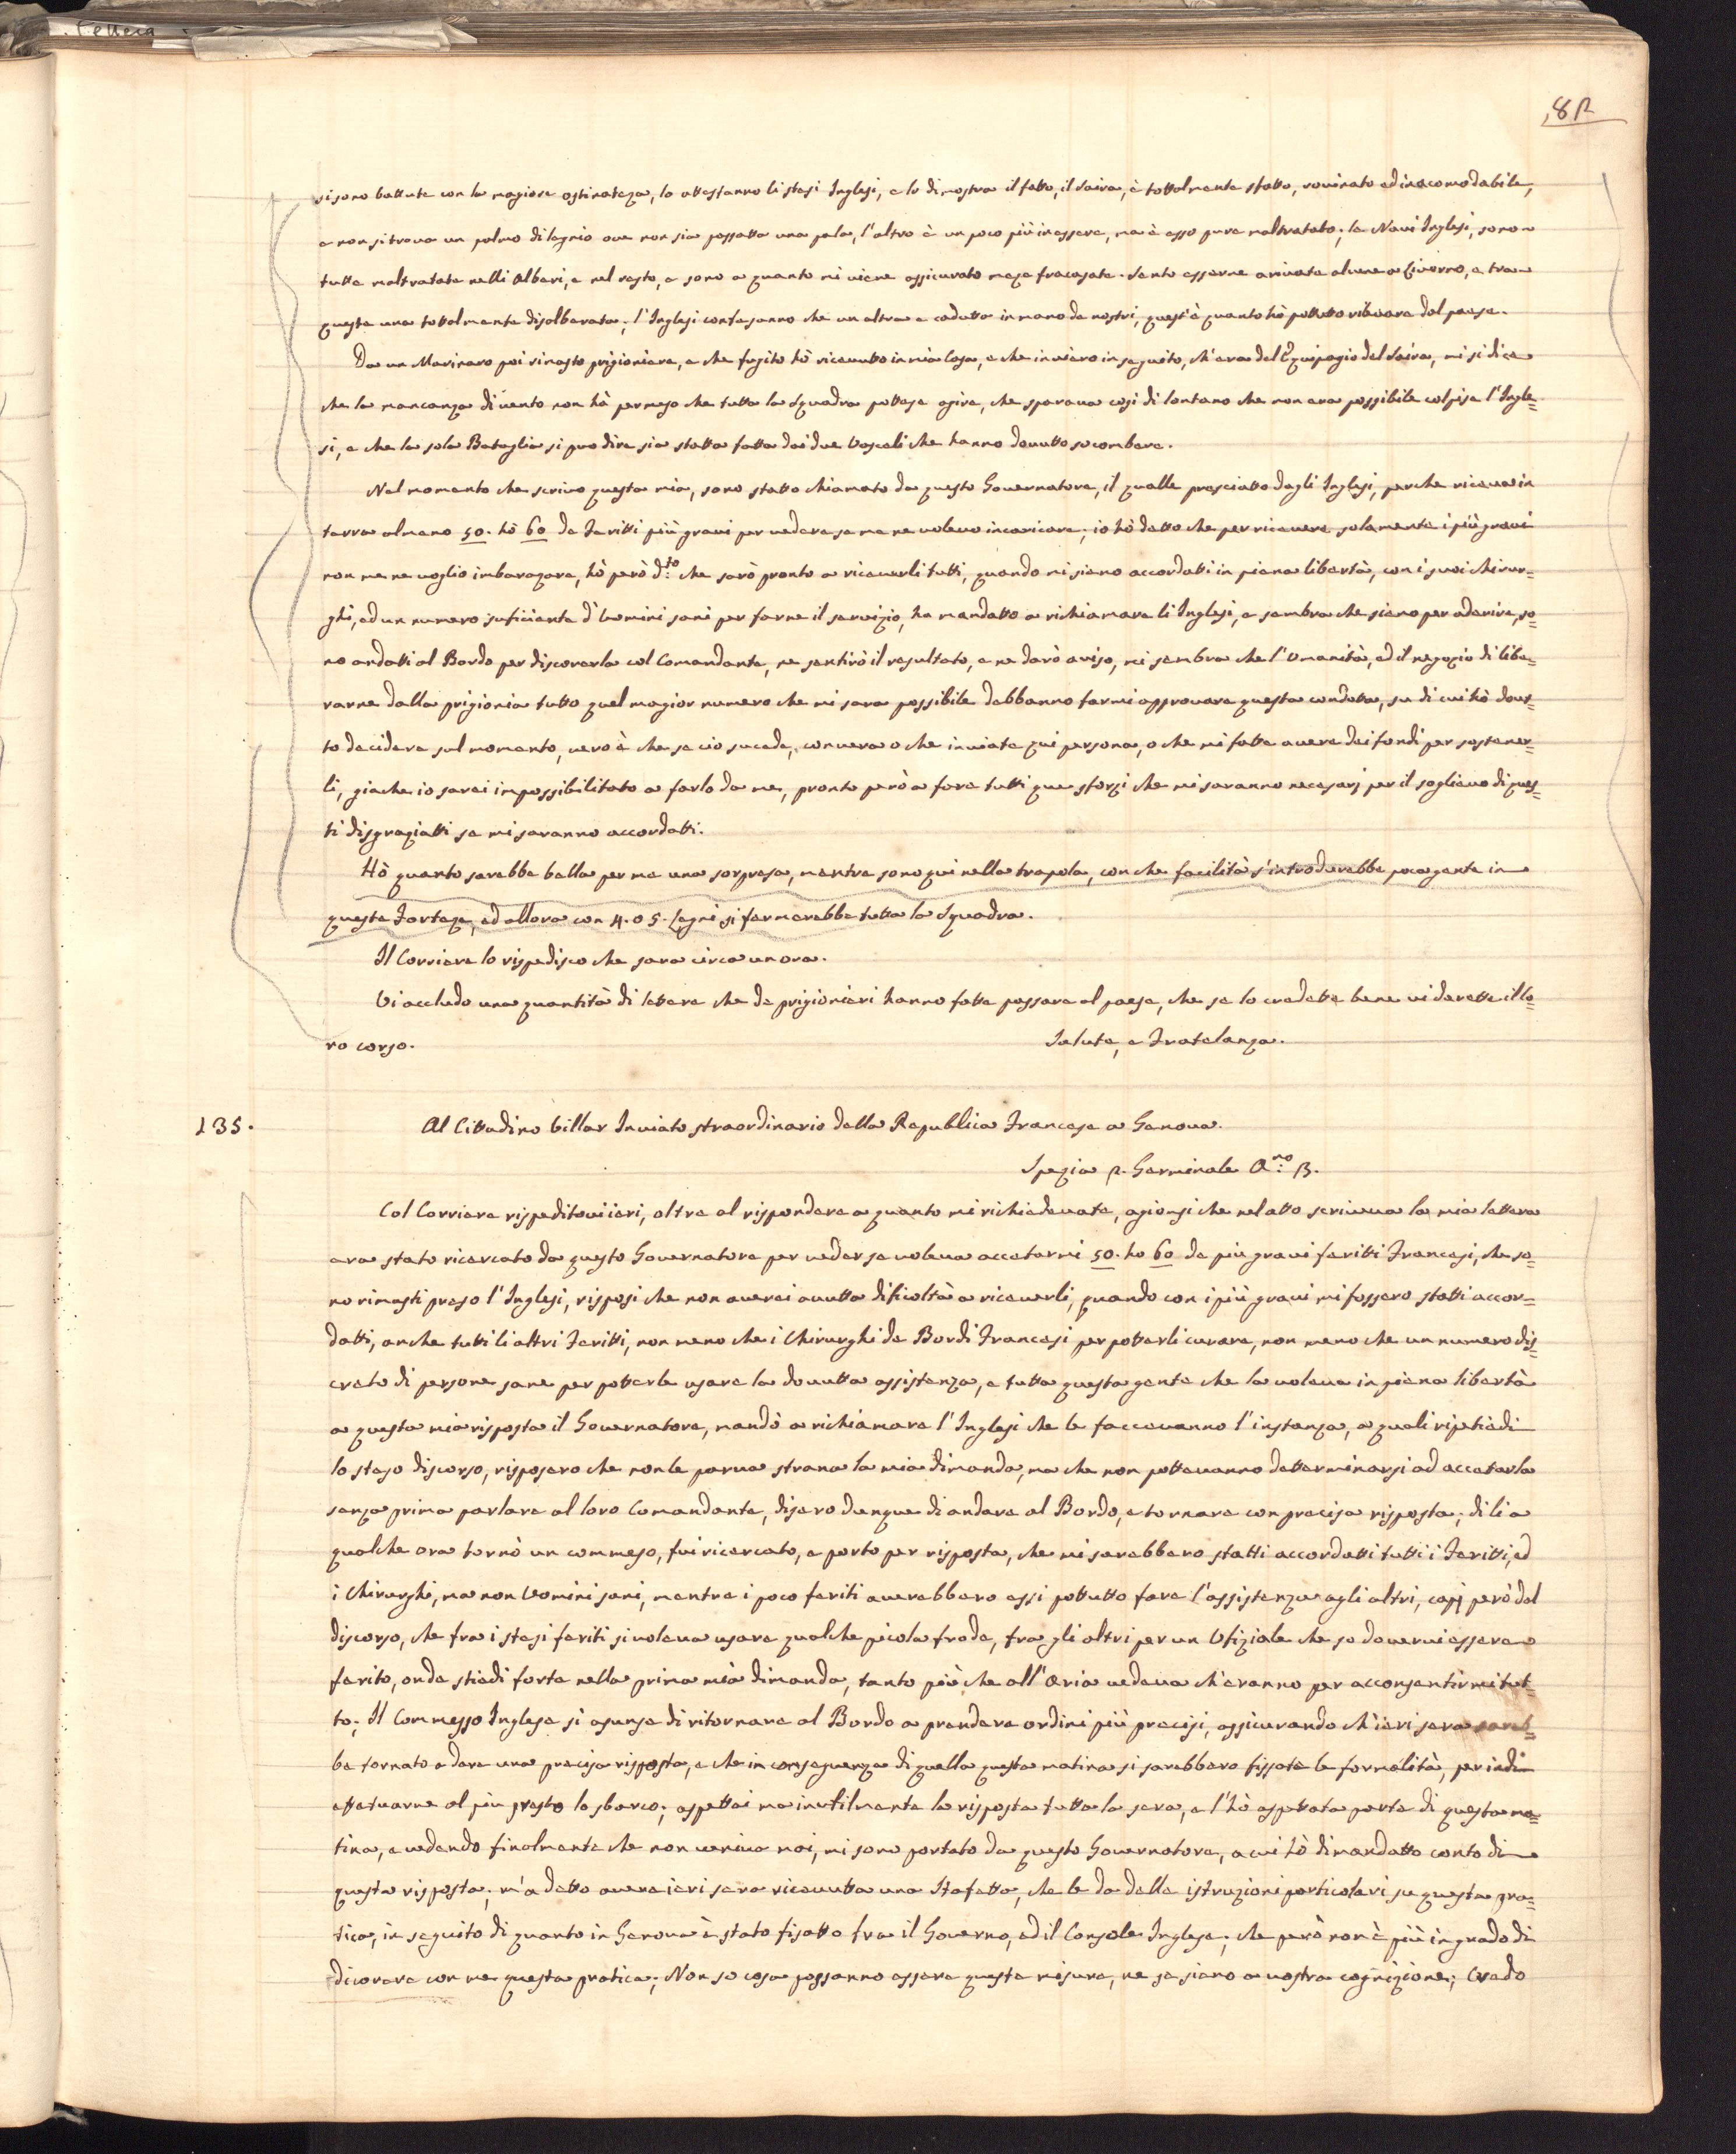 82
si sono battute con la magiore ostinateza, lo attestanno li stesi Inglesi, e lo dimostra il fatto, il Saira, è tottolmente sfatto, rovinato ed inacomodabile,
e non si trova un palmo di legnio ove non sia passatta una pala, l'altro è un poco più in essere, ma è esso pure maltratato; le Navi Inglesi, sono
tutte maltratate nelli Alberi, e nel resto, e sono a quanto mi viene assicurato meze fracasate. Sento esserne arivate alcune a Livorno, e tra
queste una tottolmente disalberata; l'Inglesi confesanno che un altra e caduta in mano de nostri, quest'è quanto hò pottuto rilevare dal paese.
Da un Marinaro poi rimasto prigioniere, e che fugito hò ricevuto in mia Casa, e che invierò in seguito, ch'era del Equipagio del Saira, mi si dice
che la mancanza di vento non hà permeso che tutta la Squadra pottese agire, che sparava cosi di lontano che non era possibile colpise l'Ingle=
si, e che la sola Bataglia si puo dire sia statta fatta dai due Vasceli che hanno dovutto socombere.
Nel momento che scrivo questa mia, sono statto chiamato da questo Governatore, il qualle presciatto dagli Inglesi, perche riceva in
terra almeno 50. hò 60 de Feritti più gravi per vedere se me ne volevo incaricare; io hò detto che per ricevere solamente i più gravi
non me ne voglio imbarazare, hò però d:to che sarò pronto a riceverli tutti, quando mi siano accordatti in piena libertà, con i suoi chirur=
ghi, ed un numero suficiente d'Uomini sani per farne il servizio, ha mandatto a richiamare li Inglesi, e sembra che siano per aderire, so=
no andatti al Bordo per discorerla col Comandante, ne sentirò il resultato, e ne darò aviso, mi sembra che l'Umanità, ed il negozio di libe=
rarne dalla prigionia tutto quel magior numero che mi sara possibile debbanno farmi approvare questa condotta, su di cui hò dovu=
to decidere sul momento, vero è che se cio sucede, converà o che inviate qui persona, o che mi fatte avere dei fondi per sostener=
li, giache io sarei impossibilitato a farlo da me, pronto però a fare tutti que sforzi che mi saranno necesarj per il soglievo di ques=
ti disgraziatti se mi saranno accordatti.
Hò quanto sarebbe bella per me una sorpresa, mentre sono qui nella trapola, con che facilità s'introdurebbe poca gente in
questa Forteza, ed allora con 4. o 5. Legni si fermerebbe tutta la Squadra.
Il Corriere lo rispedisco che sara circa un ora.
Vi accludo una quantità di lettere che de prigionieri hanno fatte passare al paese, che se lo credette bene vi darette il lo=
ro corso.
Salute, e Fratelanza.
135.
Al Cittadino Villar Inviato straordinario della Republica Francese a Genova.
Spezia 2. Germinale A:no 3.
Col Corriere rispeditovi ieri, oltre al rispondere a quanto mi richiedevate, agionsi che nel atto scriveva la mia lettera
era stato ricercato da questo Governatore per veder se voleva accetarmi 50. ho 60 de più gravi feritti Francesi, che so=
no rimasti preso l'Inglesi, risposi che non averei avutta dificoltà a riceverli, quando con i più gravi mi fossero statti accor=
datti, anche tutti li altri Feritti, non meno che i Chirurghi de Bordi Francesi per potterli curare, non meno che un numero dis=
creto di persone sane per potterle usare la dovutta assistenza, e tutta questa gente che la voleva in piena libertà
a questa mia risposta il Governatore, mandò a richiamare l'Inglesi che le faccevanno l'instanza, a quali ripetiedi
lo steso discorso, risposero che non le parva strana la mia dimanda, ma che non pottevanno detterminarsi ad accetarla
senza prima parlare al loro Comandante, disero dunque di andare al Bordo, e tornare con precisa risposta; di li a
qualche ora tornò un commeso, fui ricercato, e porto per risposta, che mi sarebbero statti accordatti tutti i Feritti, ed
i Chirurghi, ma non Uomini sani, mentre i poco feriti averebbero essi pottutto fare l'assistenza agli altri, capj però dal
discorso, che fra i stesi feriti si voleva usare qualche picola frode, fra gli altri per un Ufiziale che so dovervi essere
ferito, onde stiedi forte nella prima mia dimanda, tanto più che all'aria vedeva ch'eranno per acconsentirmi tut=
to; Il Commesso Inglese si asunse di ritornare al Bordo a prendere ordini più precisi, assicurando ch'ieri sera sareb=
be tornato a dare una precisa risposta, e che in conseguenza di quella questa matina si sarebbero fissate le formalità, per indi
effetuarne al più presto lo sbarco; aspettai ma inutilmente la risposta tutta la sera, e l'hò aspettata parte di questa ma=
tina, e vedendo finalmente che non veniva mai, mi sono portato da questo Governatore, a cui hò dimandatto conto di
questa risposta; m'a detto avere ieri sera ricevutta una Stafetta, che le da delle istruzioni particolari su questa pra=
tica, in seguito di quanto in Genova è stato fisatto fra il Governo, ed il Console Inglese, che però non è più in grado di
dicorere con me questa pratica; Non so cosa possanno essere queste misure, ne se siano a vostra cognizione; Credo